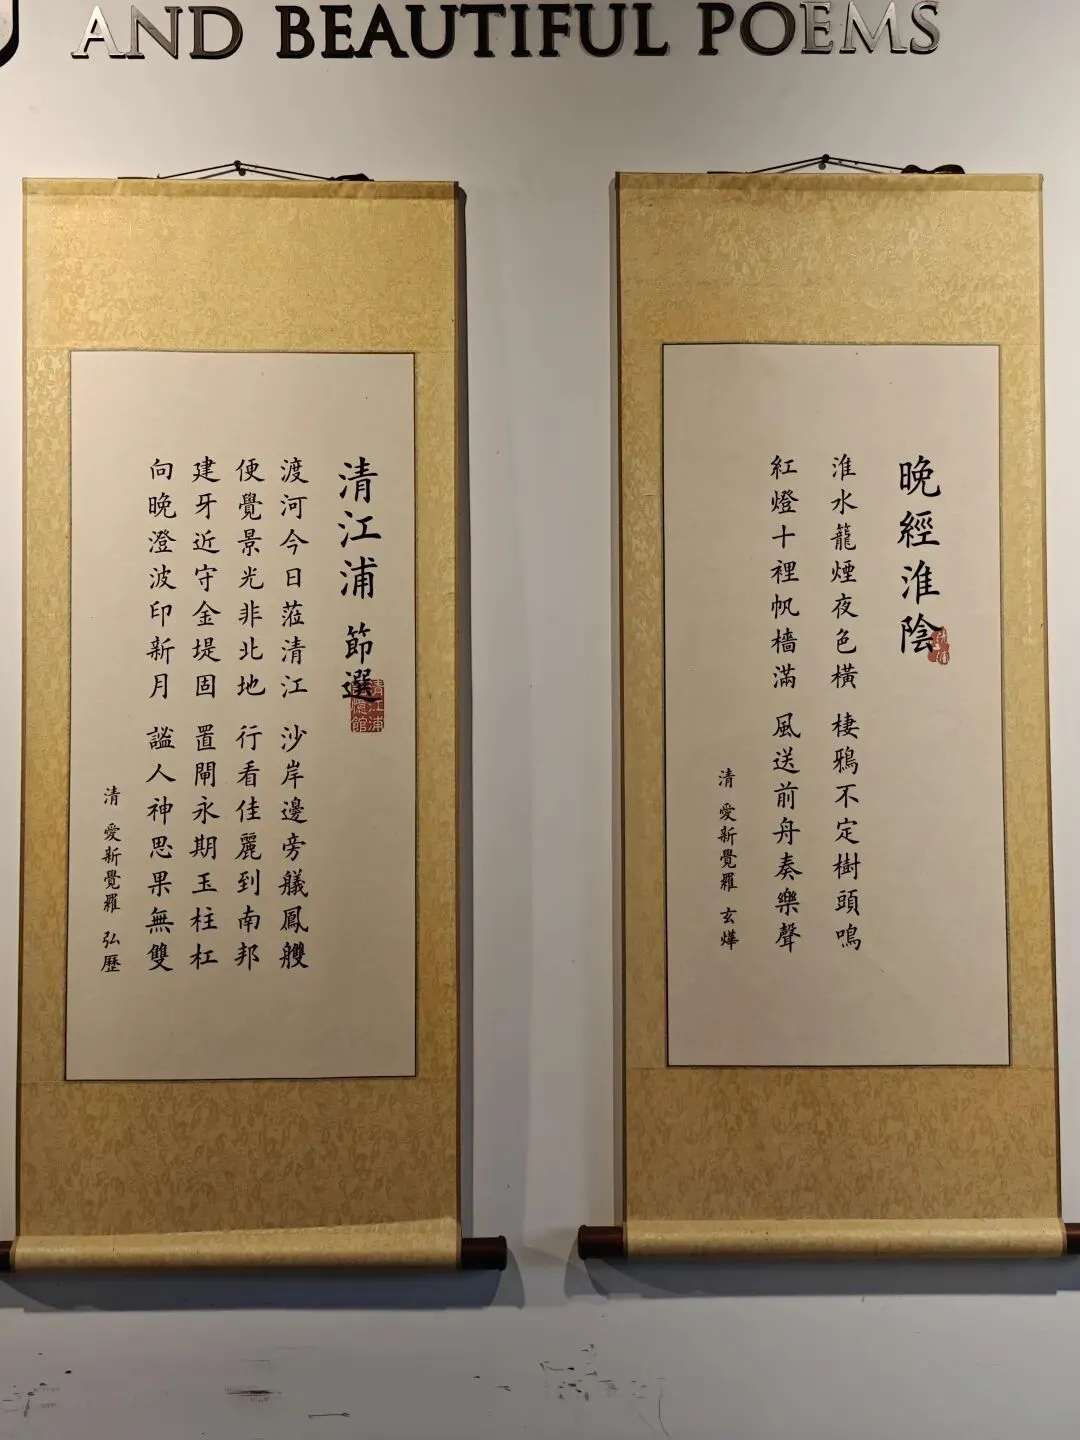 AND BEAUTIFUL POEMS
晚經淮陰
淮水籠煙夜色橫 棲鴉不定樹頭鳴
紅燈十裡帆檣滿 風送前舟奏樂聲
清 愛新覺羅 玄燁
清江浦 節選
渡河今日蒞清江 沙岸邊旁艤鳳艭
便覺景光非北地 行看佳麗到南邦
建牙近守金堤固 置閘永期玉柱杠
向晚澄波印新月 謐人神思果無雙
清 愛新覺羅 弘歷
清江浦